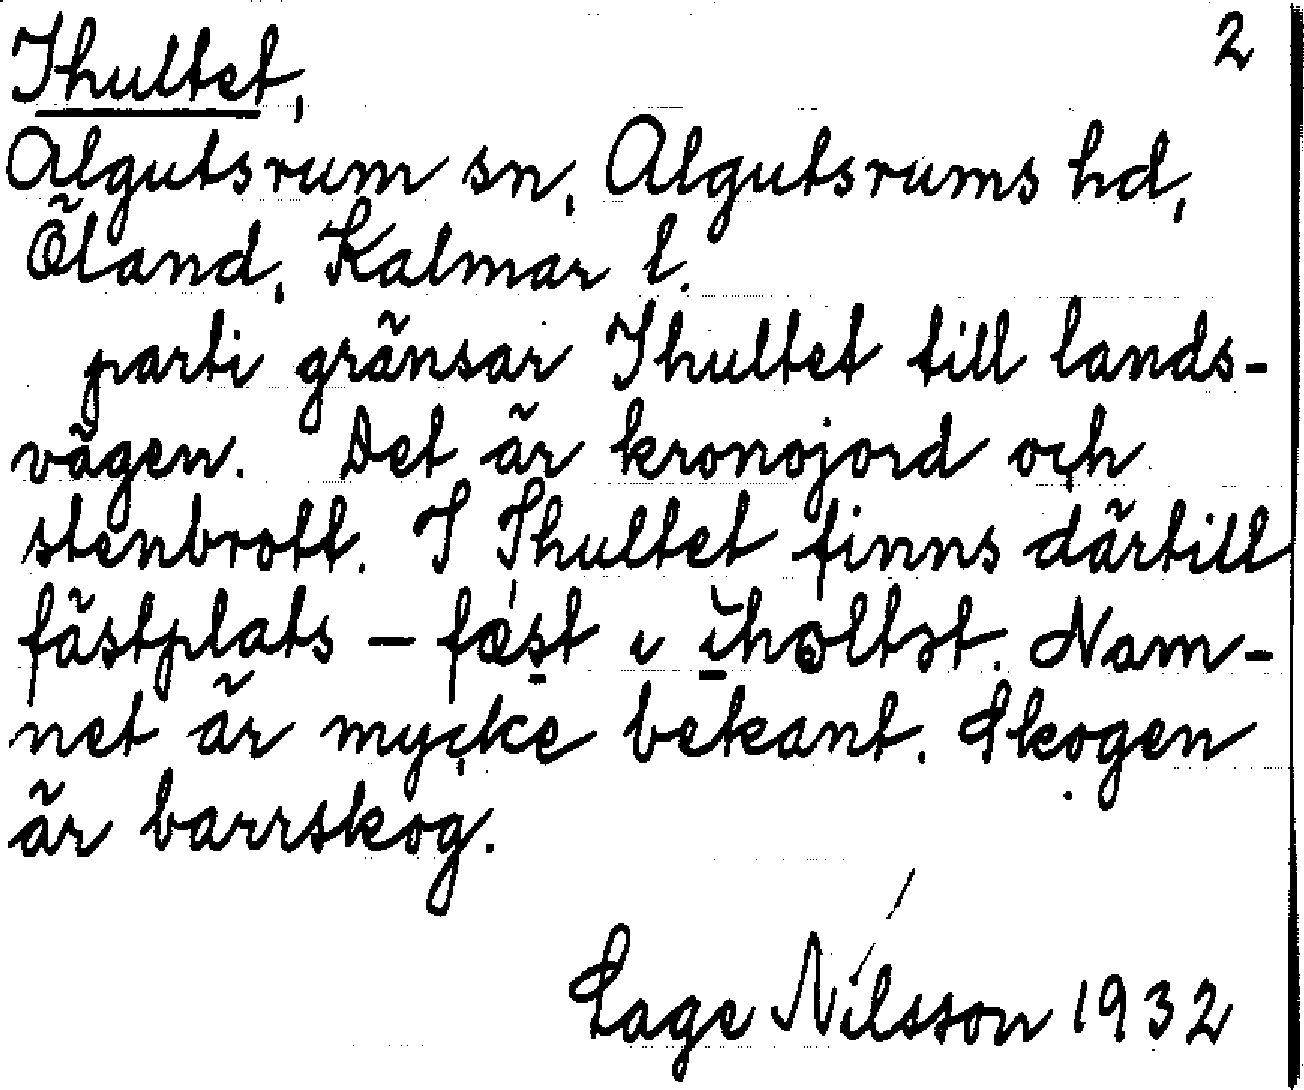 Ihultet, 2
Algutsrum sn, Algutsrums hd,
Öland, Kalmar l.
parti gränsar Ihultet till lands-
vägen. Det är kronojord och
stenbrott. I Ihultet finns därtill
fästplats – fæst i
Nam-
net är mycke bekant. Skogen
är barrskog.
Lage Nilsson 1932